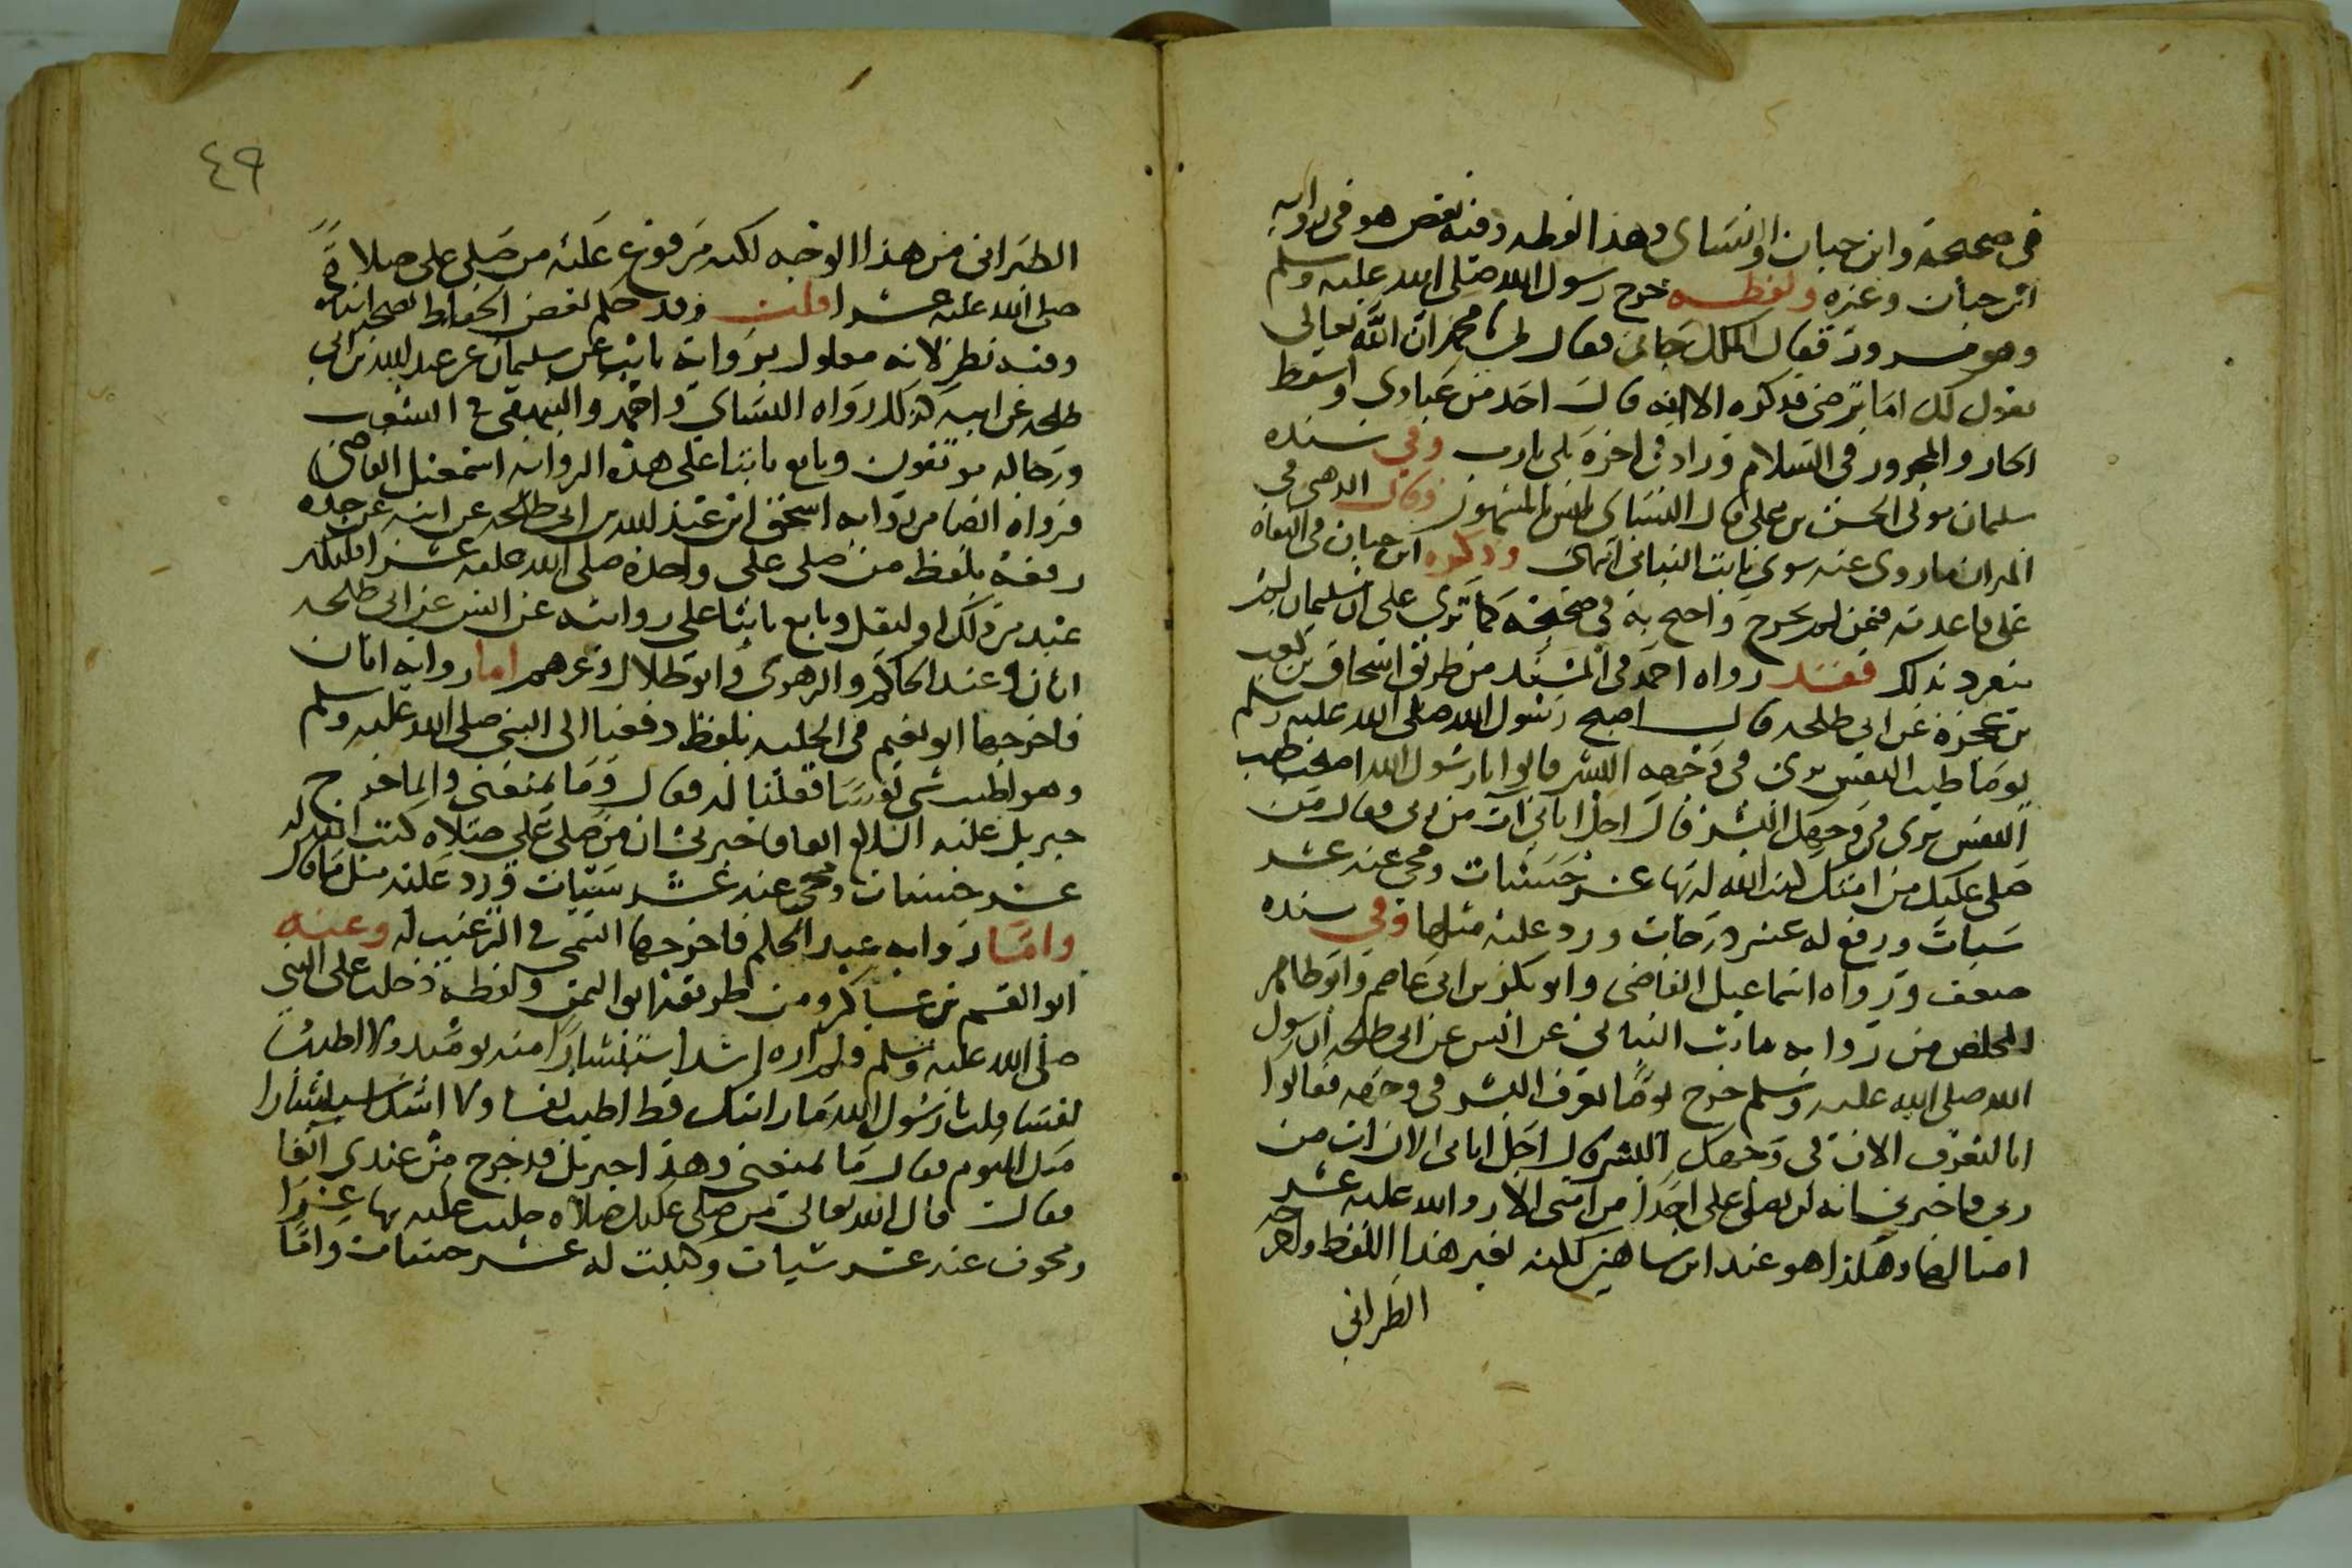 في صحيحه وابن حبان والنساي وهذا لفظه وفيه نقص هو في رواية
ابن حبان وغيره ولفظه خرج رسول الله صلى الله عليه وسلم
وهو مسرور فقال الملك جاني فقال لي يا محمد ان الله تعالى
يقول لك اما ترضى فذكره الا انه قال احد من عبادي واسقط
الجار والمجرور في السلام وزاد في اخره بلى يارب وفي سنده
سليمان مولى الحسن بن علي قال النساي ليس بالمشهور وقال الذهبي في
الميزان ما روى عنه سوى ثابت البناني انتهى وذكره ابن حبان في الثقاة
على قاعدته فيمن لم يجرح واحتج به في صحيحه كما ترى على ان سليمان لم
ينفرد بذلك فقد رواه احمد في المسند من طريق اسحاق بن كعب
بن عجرة عن ابي طلحه قال اصبح رسول الله صلى الله عليه وسلم
يوما طيب النفس يرى في وجهه البشر قالوا يا رسول الله اصبحت طيب
النفس يرى في وجهك البشر قال اجل اتاني ات من ربي فقال من
صلى عليك من امتك كتب الله له بها عشر حسنات ومحى عنه عشر
سيات ورفع له عشر درجات ورد عليه مثلها وفي سنده
ضعف ورواه اسماعيل القاضي وابو بكر بن ابي عاصم وابو طاهر
المخلص من رواية ثابت البناني عن انس عن ابي طلحه ان رسول
الله صلى الله عليه وسلم خرج يوما يعرف البشر في وجهه فقالوا
انا لنعرف الان في وجهك البشر قال اجل اتاني الان ات من
ربي فاخبرني انه لن يصلي علي احد من امتي الا ردها الله عليه عشر
امثالها وهكذا هو عند ابن شاهين لكنه بغير هذا اللفظ واخرجه
الطبراني
٤٩
الطبراني من هذا الوجه لكنه مرفوع عليه من صلى علي صلاة
صلى الله عليه عشرا قلت وقد حكم بعض الحفاظ بصحة اسناده
وفيه نظر لانه معلول برواية ثابت عن سليمان عن عبد الله بن ابي
طلحه عن ابيه كذلك رواه النساي واحمد والبيهقي في الشعب
ورجاله موثقون وتابع ثابتا على هذه الرواية اسمعيل القاضي
فرواه ايضا من رواية اسحق ابن عبد الله بن ابي طلحه عن ابيه عن جده
رفعه بلفظ من صلى علي واحدة صلى الله عليه عشرا فليكثر
عبد من ذلك او ليقل وتابع ثابتا على روايته عن انس عن ابي طلحه
ابان وعبد الحكم والزهري وابو ظلال وغيرهم اما رواية ابان
فاخرجها ابو نعيم في الحلية بلفظ دفعنا الى النبي صلى الله عليه وسلم
وهو اطيب شي نفسا فقلنا له فقال وما يمنعني وانما خرج
جبريل عليه السلام انفا فاخبرني ان من صلى علي صلاة كتب الله له
عشر حسنات ومحي عنه عشر سيئات ورد عليه مثل ما قال
واما رواية عبد الحكم فاخرجها التيمي في الترغيب له وعنه
ابو القسم بن عساكر ومن طريقه ابو اليمن ولفظه دخلت على النبي
صلى الله عليه وسلم ولم اره اشد استبشارا منه يومئذ ولا اطيب
نفسا قلت يا رسول الله ما رايتك قط اطيب نفسا ولا اشد استبشارا
من اليوم فقال ما يمنعني وهذا جبريل قد خرج من عندي انفا
فقال قال الله تعالى من صلى عليك صلاة صليت عليه بها عشرا
ومحوت عنه عشر سيات وكتبت له عشر حسنات واما